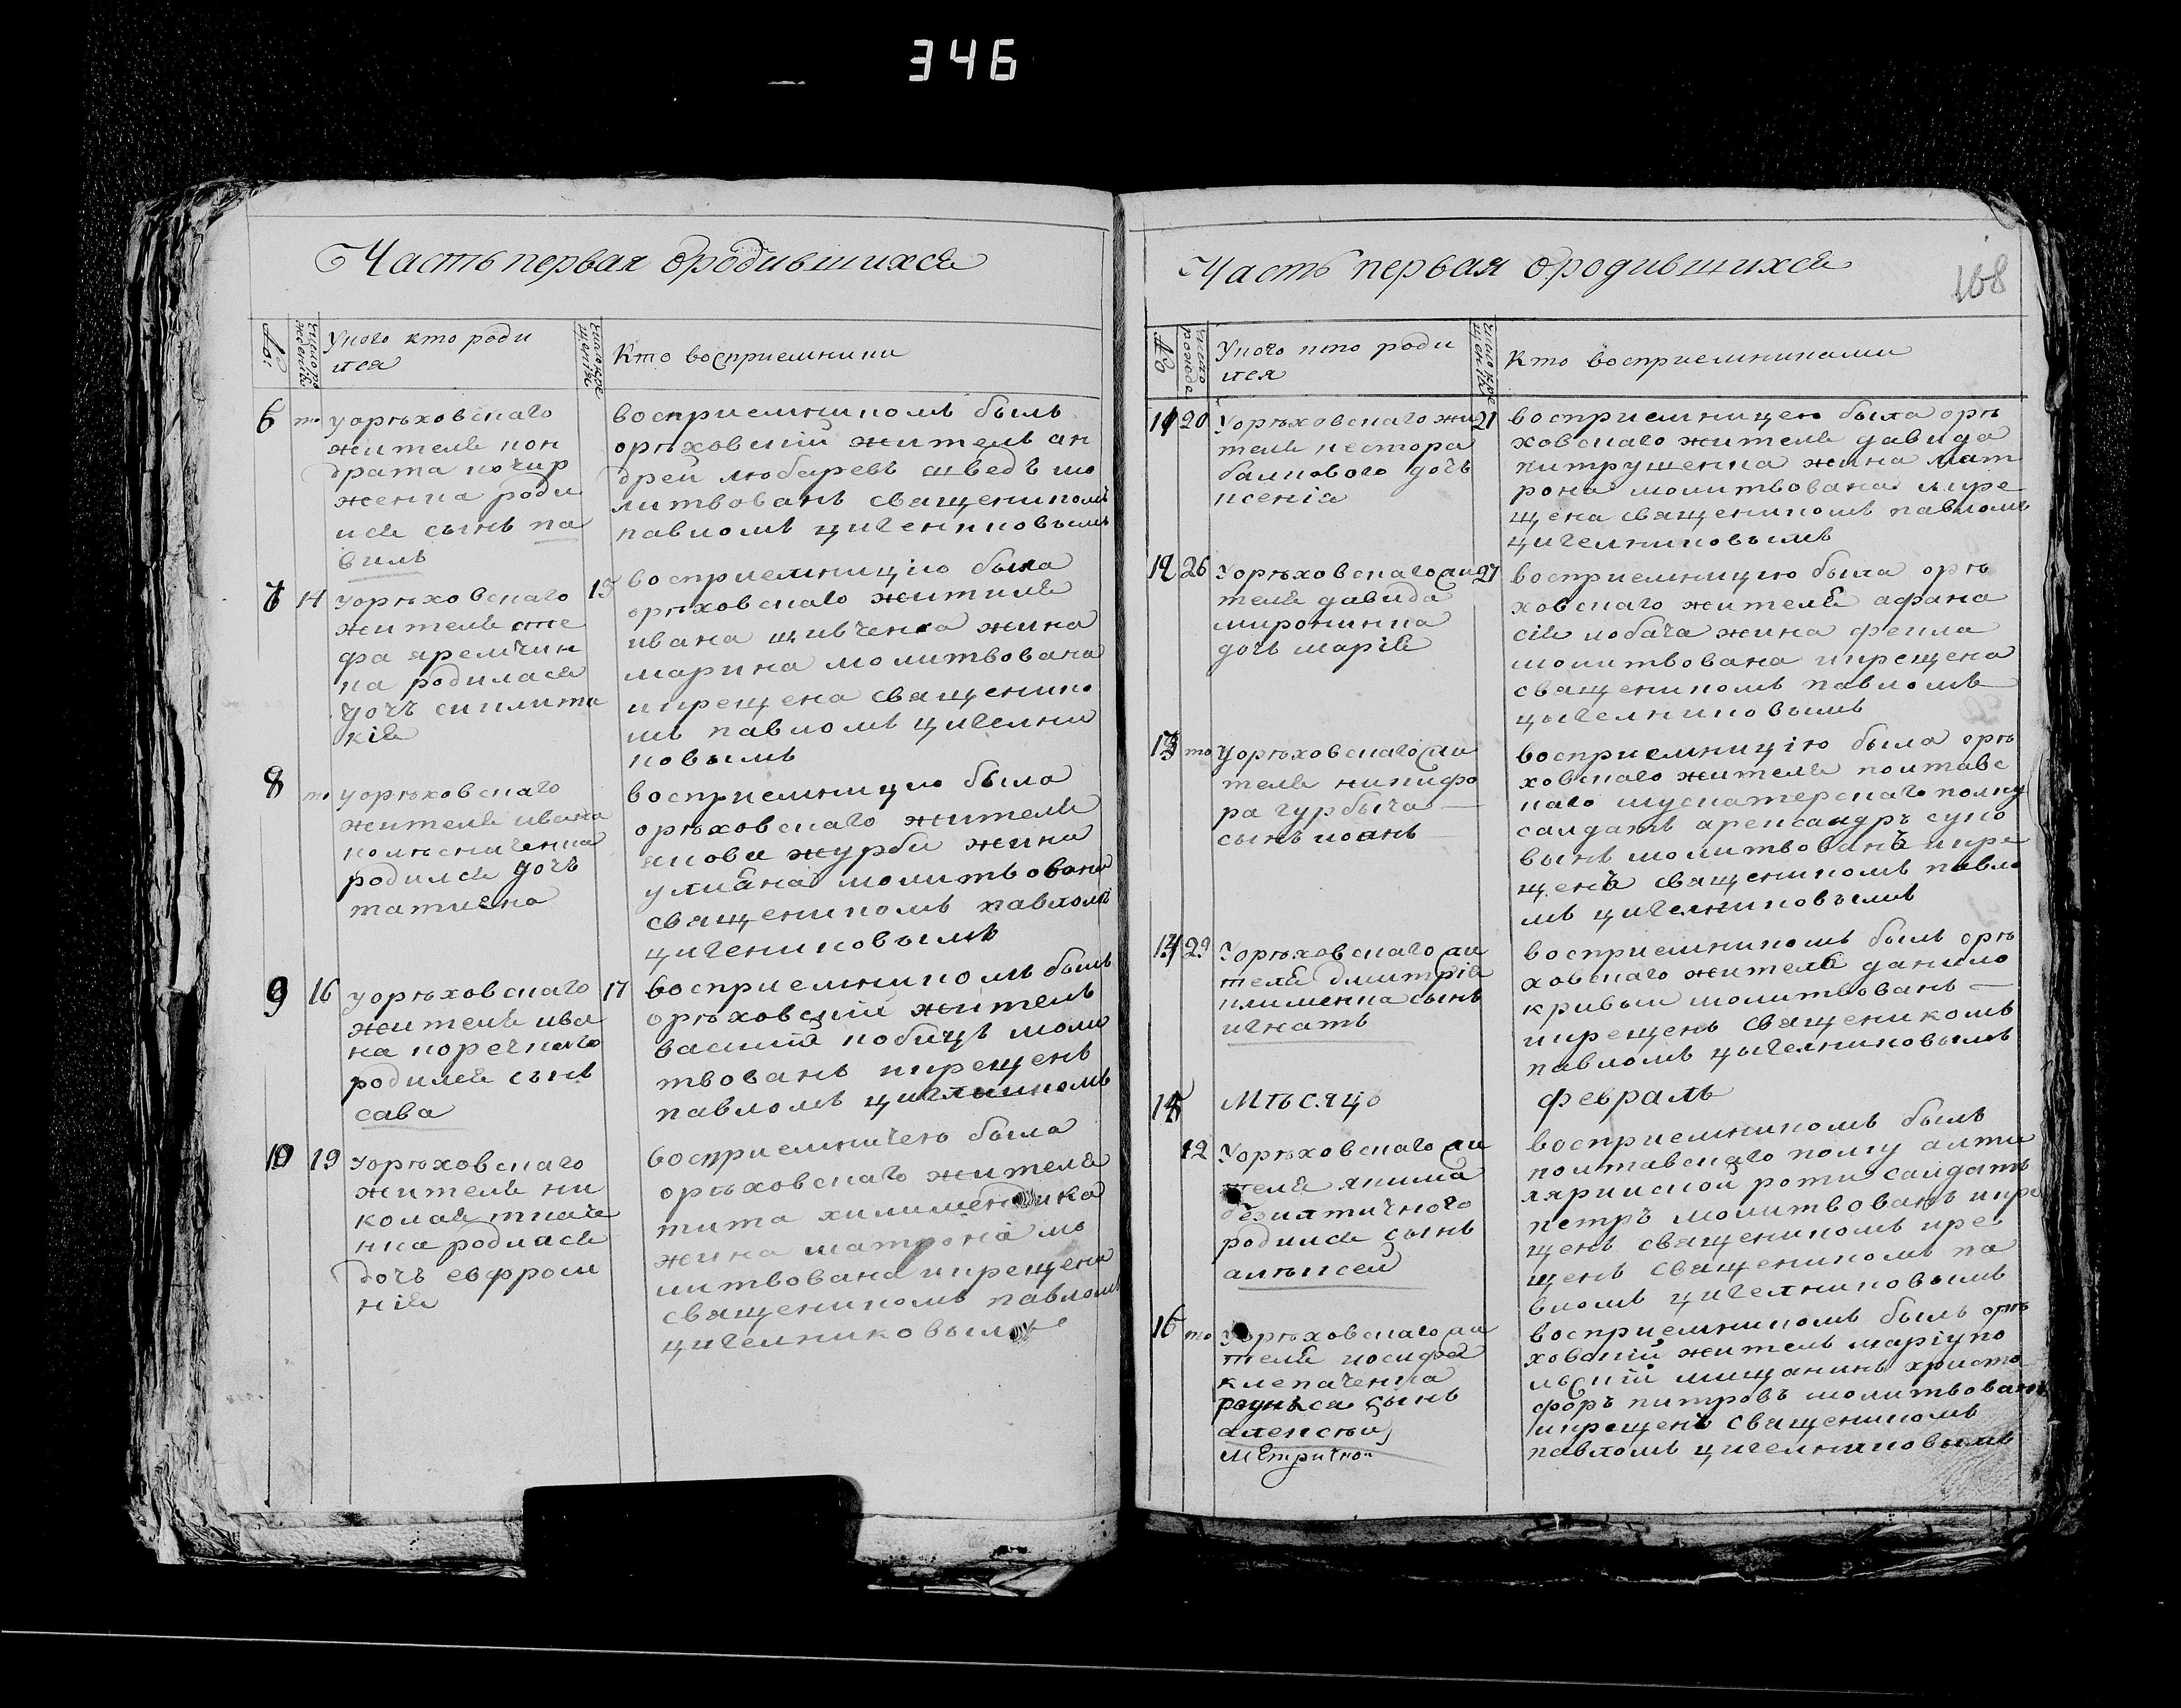 346
Часть первая ородившихся
№:
число ро
жденiя
Укого кто роди
лся
число кре
щенiя
Кто восприемники
6 то уорѣховскаго
жителя кон
драта
женка роди
лся сынъ па
вилъ
восприемникомъ былъ
орѣховскiй житель ан
дрей любаревъ шведъ мо
литвованъ священикомъ
павломъ цигенниковымъ
7 14 уорѣховскаго
жителя
фа яремчин
ка родилася
дочъ
кiя
15 восприемницiю была
орѣховскаго жителя
ивана шивченка жина
марина молитвована
икрещена священико
мъ павломъ цигелни
ковымъ
8 то уорѣховскаго
жителя ивана
колѣсниченка
родился дочъ
татиена
восприемницию была
орѣховскаго жителя
якова журби жина
улиана молитвована
священикомъ павломъ
цигениковымъ
9 16 уорѣховскаго
жителя ива
на поречного
родился сынъ
сава
17 восприемникомъ былъ
орѣховскiй житель
василiй кобицъ моли
твованъ икрещенъ
павломъ
10 19 Уорѣховскаго
жителя ни
колая ткаче
нка родлася
дочъ евфроси
нiя
восприемничею была
орѣховскаго жителя
тита
жина матрона мо
литвована икрещена
священикомъ павломъ
цигелниковымъ
Часть первая ородившихся
168
№
число
рожде
Укого кто роди
лся
число кре
щенiя
Кто восприемниками
11 20 Уорѣховскаго жи
теля нестора
балкового дочъ
ксенiа
21 восприемницею была орѣ
ховскаго жителя давида
китрушенка жина мат
рона молитвована икре
щена священикомъ павломъ
цигелниковымъ
12 26 Уорѣховскаго жи
теля давида
миронинка
дочъ марiя
27 восприемницию была орѣ
ховскаго жителя афана
сiя лобача жина фекла
молитвована икрещена
священикомъ павломъ
цыгелниковымъ
13 то Уорѣховскаго жи
теля никифо
ра гурбыча
сынъ иоанъ
восприемницiю была орѣ
ховскаго жителя полтавс
каго мускатерскаго полку
салдатъ александръ суко
вынъ молитвованъ икре
щенъ священикомъ павло
мъ цигелниковымъ
14 29 Уорѣховскаго жи
теля дмитрiя
клименка сынъ
игнатъ
восприемникомъ былъ орѣ
ховскаго жителя данило
кривыи молитвованъ
икрещенъ священикомъ
павломъ цыгелниковымъ
Мѣсяцъ февраль
15 12 Уорѣховскаго жи
теля якима
безпятичного
родился сынъ
алѣксей
восприемникомъ былъ
полтавскаго полку алти
лярииской роти салдатъ
петръ молитвованъ икре
щенъ священикомъ кре
щенъ священикомъ па
вломъ цигелниковымъ
16 то Уорѣховскаго жи
теля иосифа
клепаченка
роднлся сынъ
алексѣй
Метричной
восприемникомъ былъ орѣ
ховскiй житель марiупо
льскiй мищанинъ христо
форъ питровъ молитвованъ
икрещенъ священикомъ
павломъ цигелниковымъ